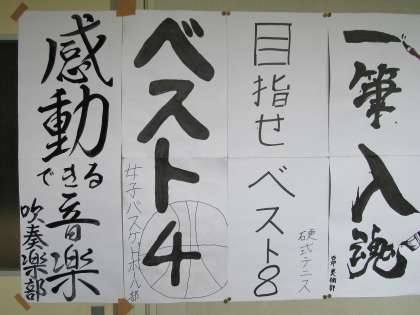 一筆
入魂
目指せ
ベスト8
硬式テニス
ベスト4
女子バスケットボール部
感動
できる
音楽
吹奏楽部